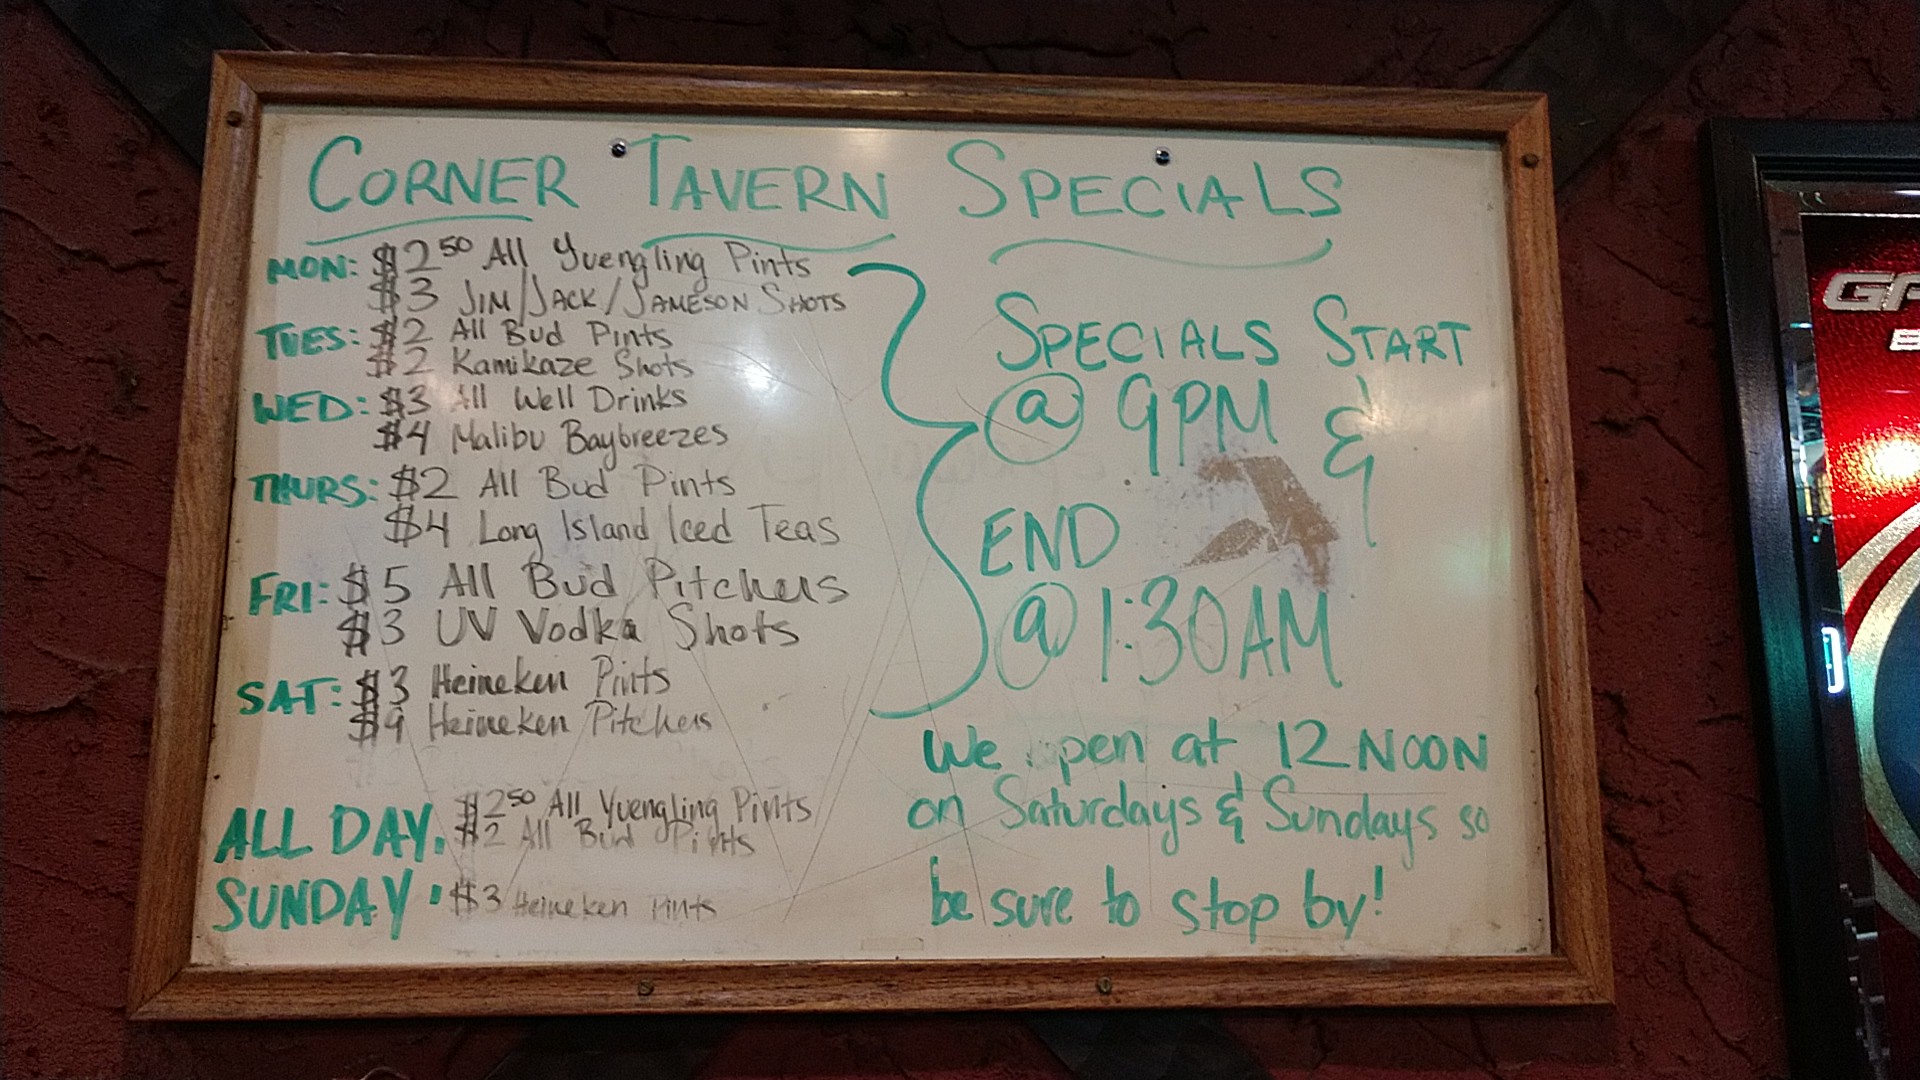 CORNER TAVERN SPECIALS
MON: $2 50 All Yuengling Pints
$3 JIM/JACK/JAMESON SHOTS
TUES: $2 All Bud Pints
$2 Kamikaze Shots
WED: $3 All Well Drinks
$4 Malibu Baybreezes
THURS: $2 All Bud Pints
$4 Long Island Iced Teas
FRI: $5 All Bud Pitchers
$3 UV Vodka Shots
SAT: $3 Heineken Pints
$9 Heineken Pitchers
ALL DAY
SUNDAY:
$2 50 All Yuengling Pints
$2 All Bud Pints
$3 Heineken Pints
SPECIALS START
@ 9PM &
END
@ 1:30AM
We open at 12 NOON
on Saturdays & Sundays so
be sure to stop by!